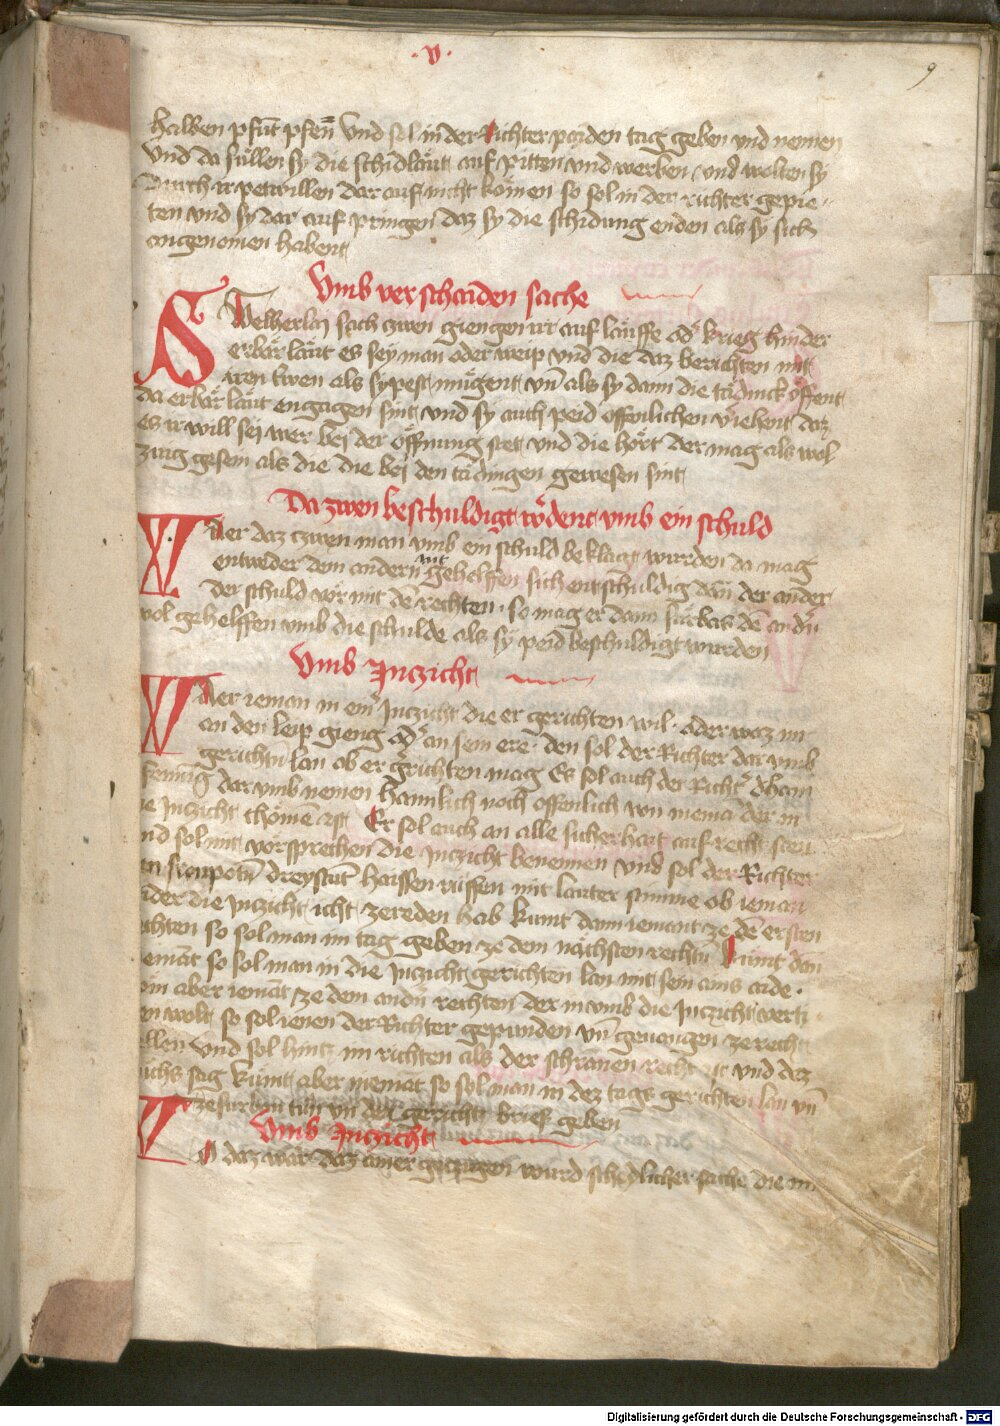 .v.
9
halben pfūt pfen̄ Vnd sol in der Richter paiden tag geben vnd nemen
Vnd da sullen sy die schidläut auf pitten vnd werben / vnd wolten sy
Durch ir petwillen dar auf nicht kömen so sol in der richter gepie„
ten vnd sy dar auf pringen daz sy die schidung enden als sy sich
angenomen habent
Vmb verschaiden sache
Swelherlaj sach zwen giengen ir auf läuffe od' krieg hinder
erbär läut es sey man oder weip vnd die daz berichten mit
iren trwen als sy pest mügent / vn̄ als sy dann die tädinck öffent
da erbär läut engagen sint / vnd sy auch peid offenlichen v'iehent daz
es ir will sej wer bej der öffnung stet vnd die hört der mag als wol
zwg gesein als die die bej den tädingen gewesen sint
Da zwen beschuldigt w'dent vmb ein schuld
Wer daz zwen man vmb ein schuld beklagt wurden da mag
entweder dem andern nit gehelffen sich entschuldig dan̄ der ander
Der schuld vor mit dē rechten · so mag er dann fürbas dē andn̄
wol gehelffen vmb die schulde als sy peid beschuldigt wurden
Vmb Inzicht
Wer ieman in ein' Inzicht die er gerichten wil · oder waz im
an den leip gieng od' an sein ere · den sol der Richter dar vmb
gerichtn̄ lan ob er g'richten mag Es sol auch der Richt' dhain
pfenning dar vmb nemen haimlich noch offenlich von niema der in
die Inzicht chömē ist Er sol auch an alle sicherhait auf recht sten
vnd sol mit vorsprechen die Inzicht benennen vnd sol der Richter
den fronpotn̄ dreystūt haissen rüffen mit lauter stimme ob ieman
hinder die Inzicht icht zereden hab kumt dann iemant ze dē ersten
rechten so sol man im tag geben ze dem nächsten rechtn̄ kumt dan̄
niemāt so sol man in die Inzicht gerichten lan mit sein ains aide ·
kom aber iemāt ze dem andn̄ rechten der in vmb die Inzicht verti
gen wolt / so sol ienen der Richter gepunden vn̄ geuangen ze recht
stellen vnd sol hintz im richten als der schrannen recht ist vnd dez
puchs sag kümt aber niemāt so sol man in dez tags gerichten lan vn̄
ze sūrbun tün vn̄ dez gerichtz brief geben
Vmb Inzicht
Wo daz wär daz ainer gezigen wurd schedlicher sache die im
Digitalisierung gefördert durch die Deutsche Forschungsgemeinschaft - DFG